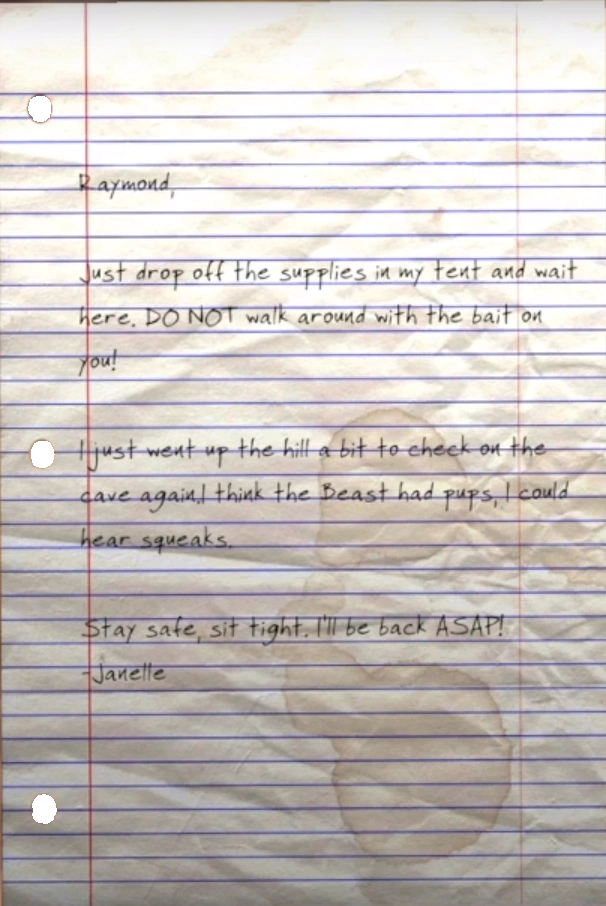 Raymond,
Just drop off the supplies in my tent and wait
here. DO NOT walk around with the bait on
you!
I just went up the hill a bit to check on the
cave again.I think the Beast had pups, I could
hear squeaks.
Stay safe, sit tight. I'll be back ASAP!
-Janelle